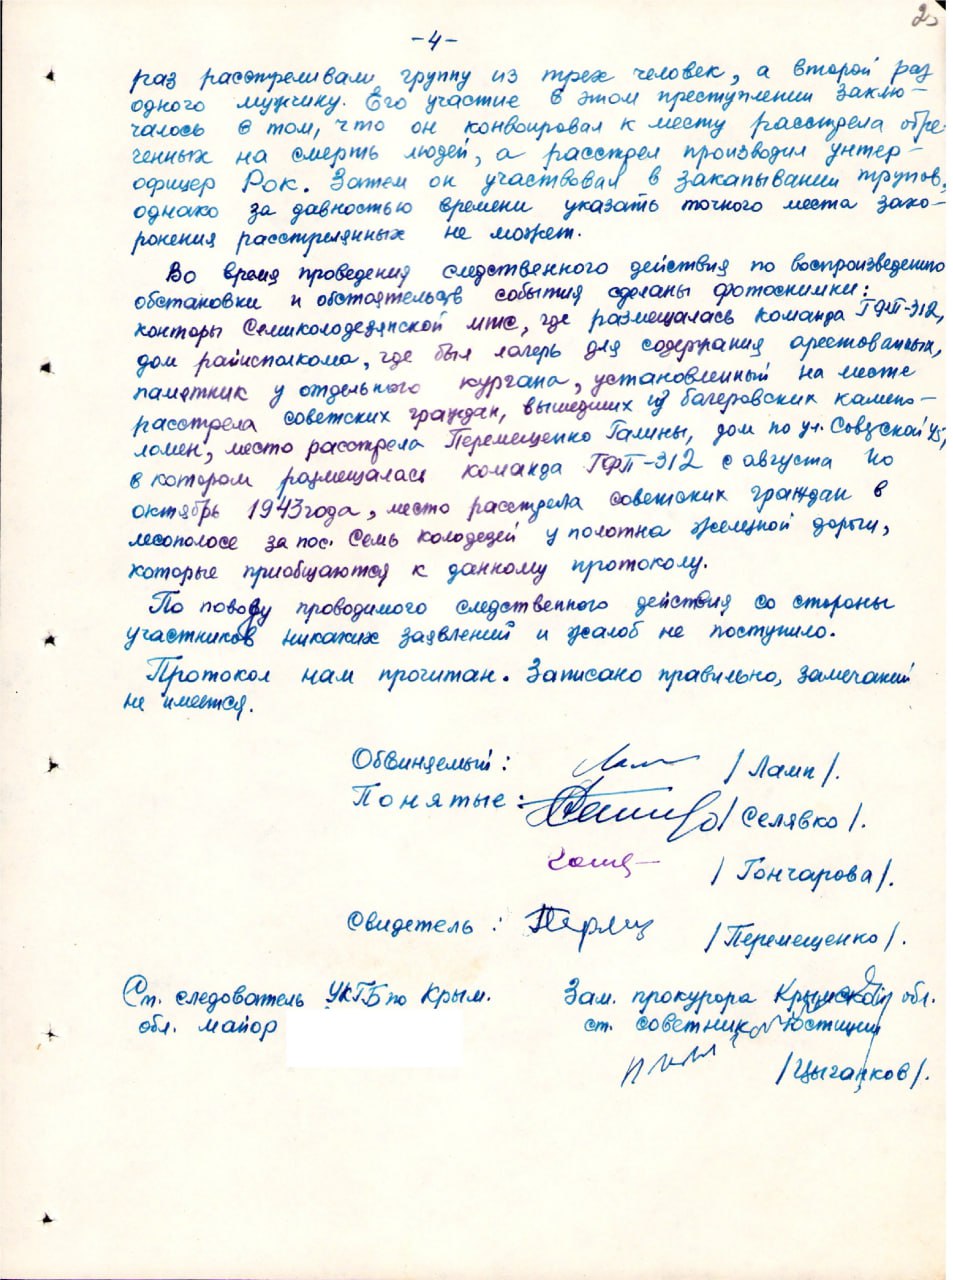 -4-
раз расстреливали группу из трех человек, а второй раз
одного мужчину. Его участие в этом преступлении заклю-
чалось в том, что он конвоировал к месту расстрела обре-
ченных на смерть людей, а расстрел производил унтер-
офицер Рок. Затем он участвовал в закапывании трупов,
однако за давностью времени указать точного места захо-
ронения расстрелянных не может.
Во время проведения следственного действия по воспроизведению
обстановки и обстоятельств события сделаны фотоснимки:
конторы Семиколодезянской мтс, где размещалась команда ГФП-312,
дом райисполкома, где был лагерь для содержания арестованных,
памятник у отдельного кургана, установленный на месте
расстрела советских граждан, вышедших из багеровских камено-
ломен, место расстрела Перемещенко Галины, дом по ул. Советской 45,
в котором размещалась команда ГФП-312 с августа по
октябрь 1943 года, место расстрела советских граждан в
лесополосе за пос. Семь колодезей у полотна железной дороги,
которые приобщаются к данному протоколу.
По поводу проводимого следственного действия со стороны
участников никаких заявлений и жалоб не поступило.
Протокол нам прочитан. Записано правильно, замечаний
не имеется.
Обвиняемый: /Ламп/.
Понятые: /Селявко/.
/Гончарова/.
Свидетель: /Перемещенко/.
Ст. следователь УКГБ по Крым. Зам. прокурора Крымской обл.
обл. майор ст. советник юстиции
/Цыганков/.